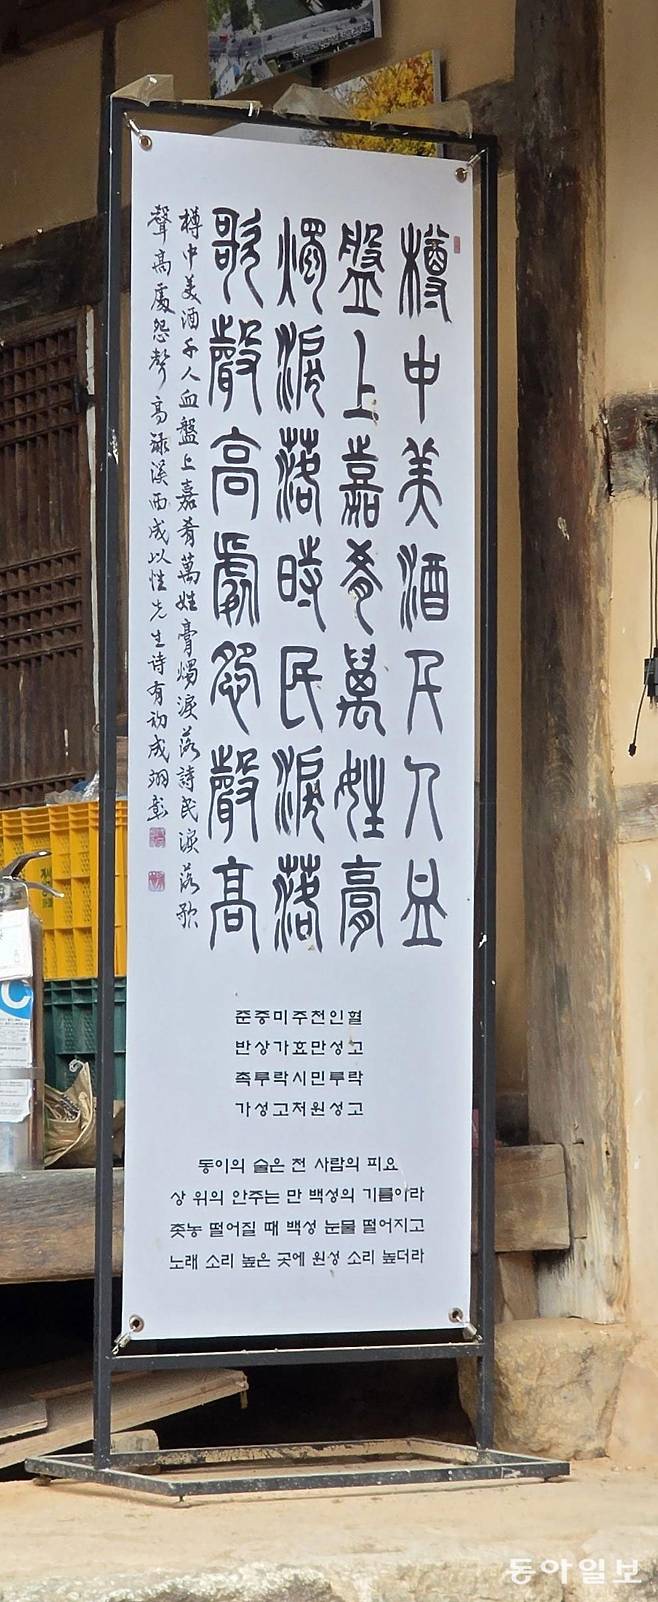 樽中美酒千人血
盤上嘉肴萬姓膏
燭淚落時民淚落
歌聲高處怨聲高
樽中美酒千人血盤上嘉肴萬姓膏燭淚落詩民淚落歌
聲高處怨聲高錄溪西成以性先生詩有初成翊彰
준중미주천인혈
반상가효만성고
촉루락시민루락
가성고처원성고
동이의 술은 천 사람의 피요
상 위의 안주는 만 백성의 기름이라
촛농 떨어질 때 백성 눈물 떨어지고
노래 소리 높은 곳에 원성 소리 높더라
동아일보